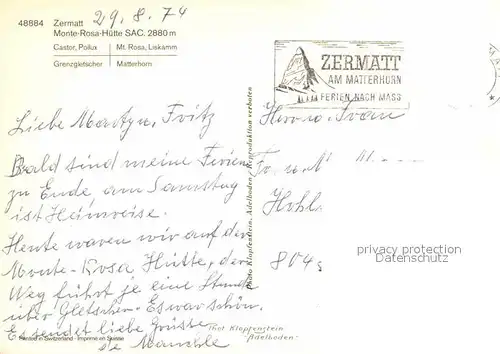 48884 Zermatt 29.8.74
Monte-Rosa-Hütte SAC. 2880 m
Castor, Pollux | Mt. Rosa, Liskamm
Grenzgletscher | Matterhorn
Liebe Martyn, Fritz
Bald sind meine Ferien
zu Ende am Samstag
ist Heimreise.
Heute waren wir auf der
Monte-Rosa Hütte, der
Weg führt je eine Stunde
über Gletscher. Es war schön.
Es sendet liebe Grüsse
Printed in Switzerland - Imprimé en Suisse
Photo Klopfenstein, Adelboden / Reproduktion verboten
Phot Klopfenstein
Adelboden
ZERMATT
AM MATTERHORN
FERIEN NACH MASS
Herr u.
Hohl
804
privacy protection